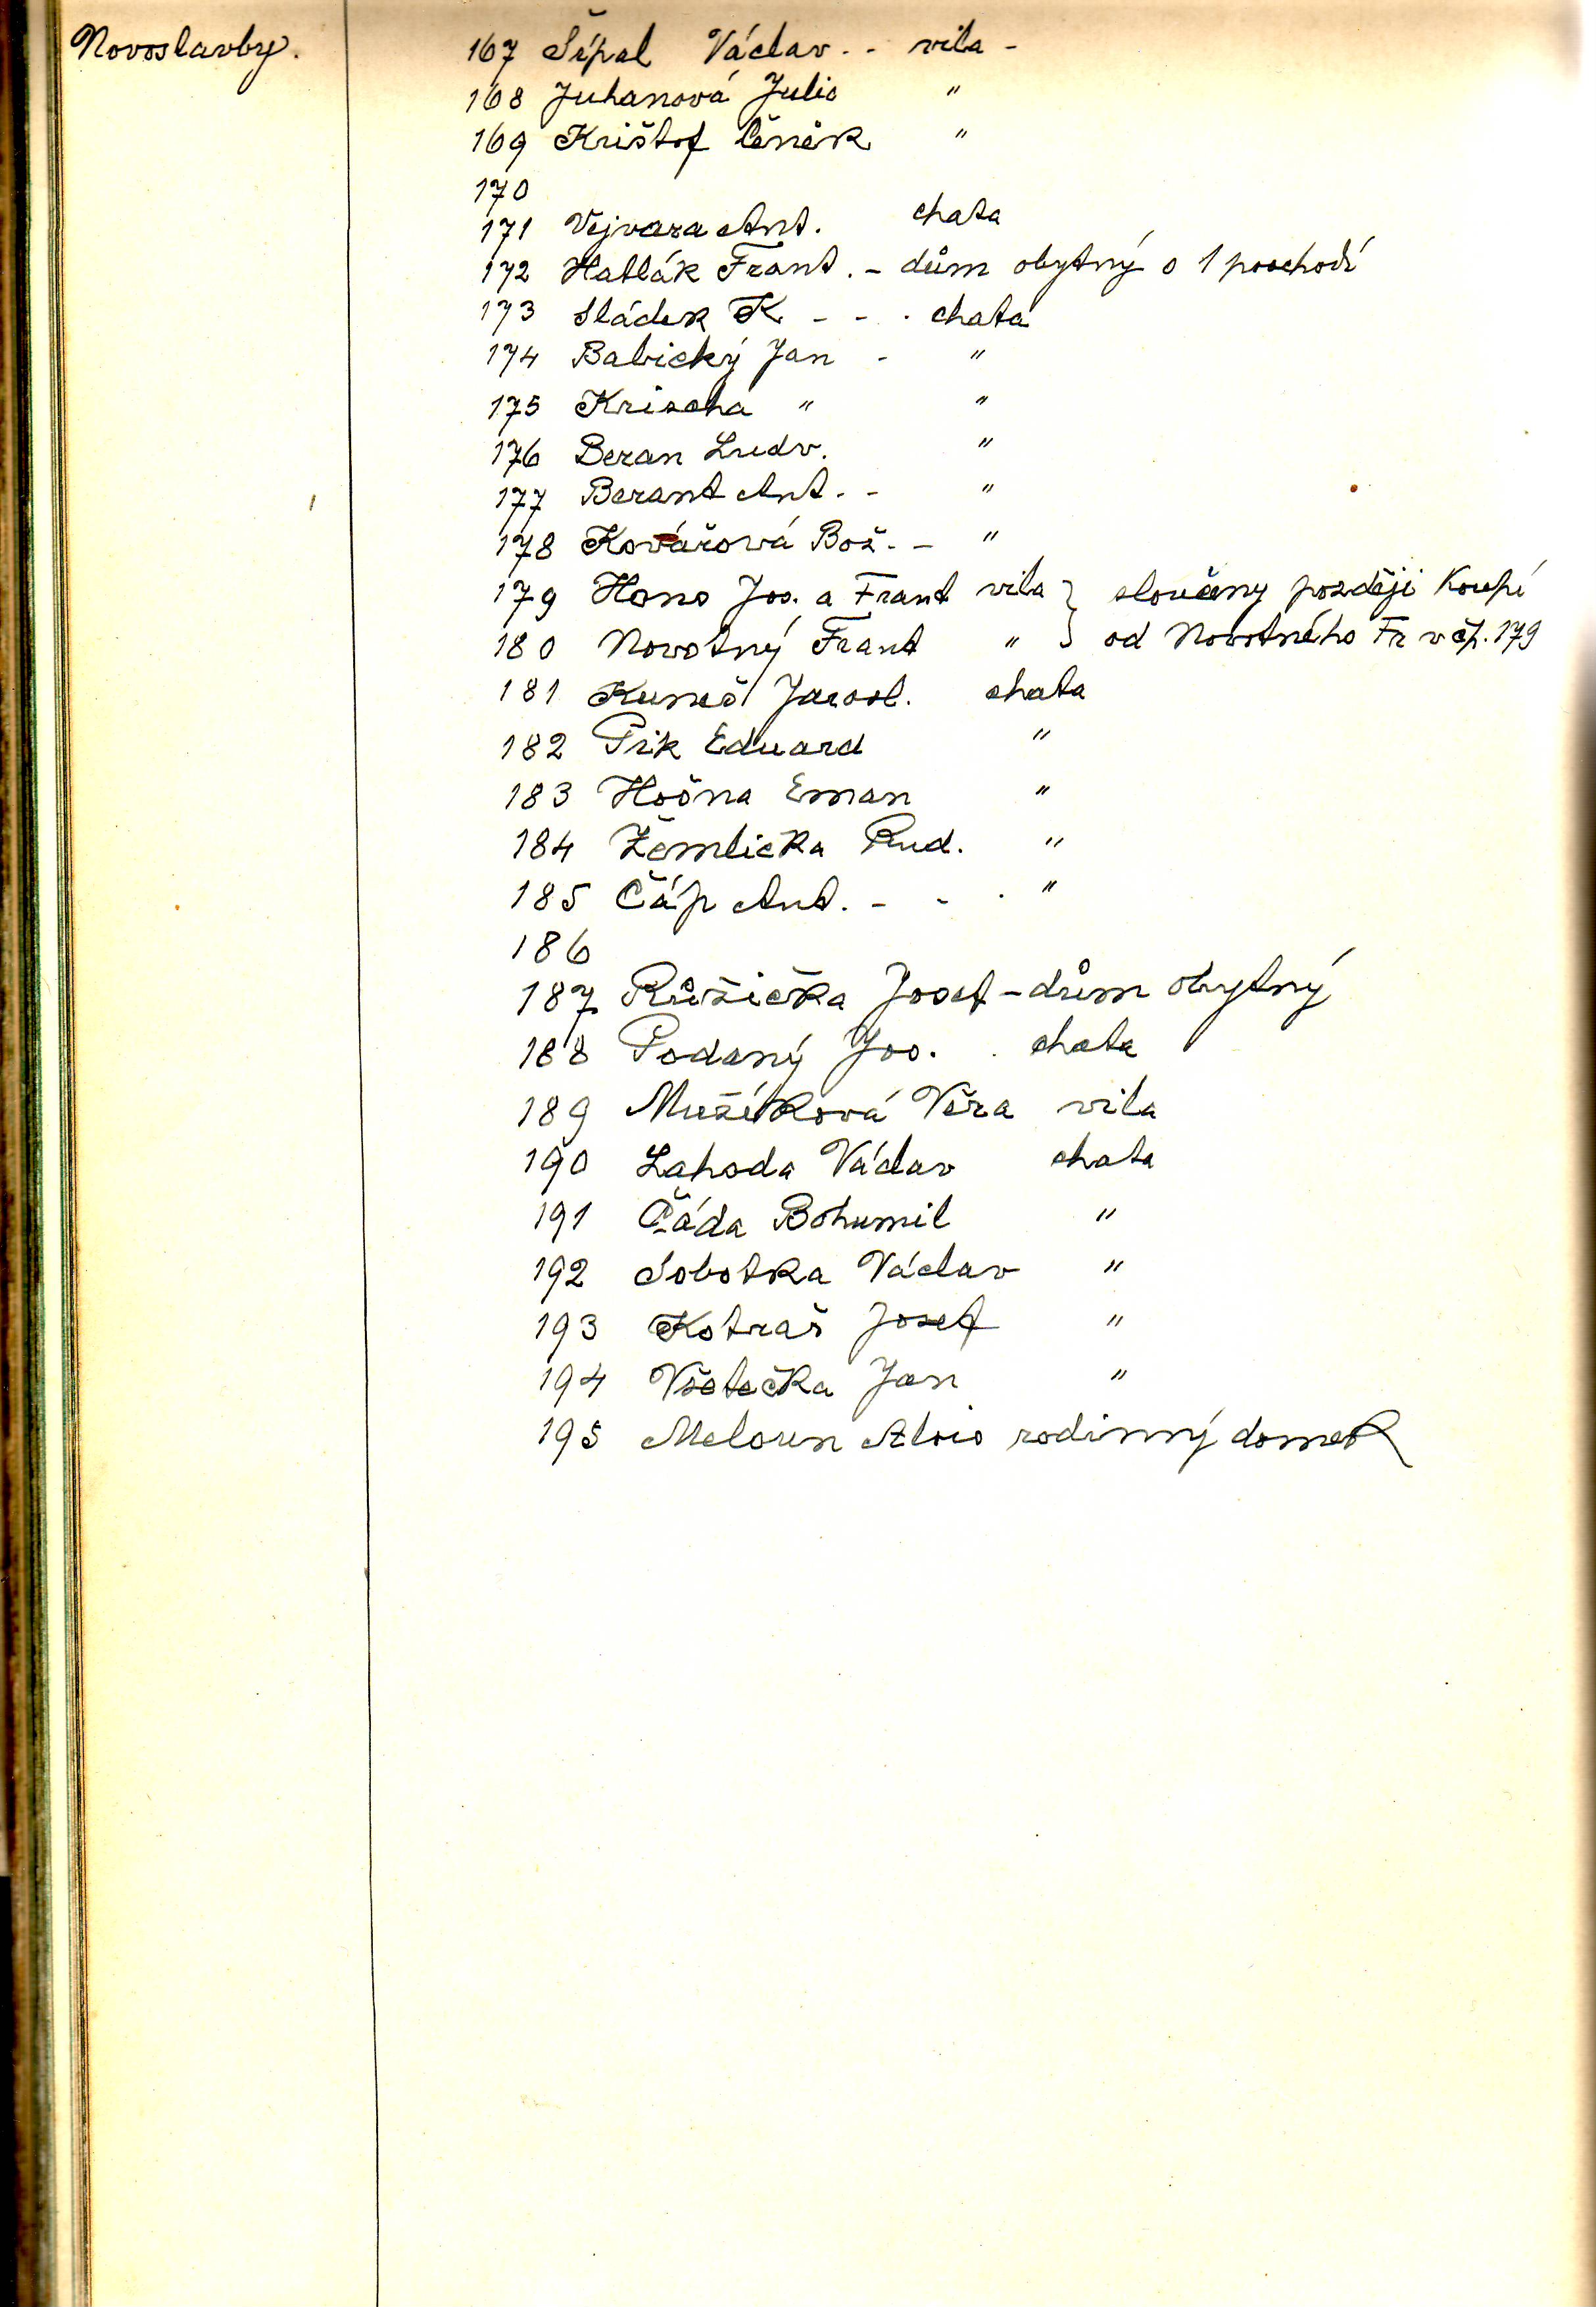 Novostavby.
167 Šípal Václav - - vila -
168 Juhanová Julie "
169 Krištof Čeněk "
170
171 Vejvara Ant. chata
172 Hatlák Frant. - dům obytný o 1 poschodí
173 Sládek K. - - - chata
174 Babický Jan - "
175 Krischa " "
176 Beran Ludv. "
177 Berant Ant. - - "
178 Kovářová Bož. - "
179 Hons Jos. a Frant vila } sloučeny později koupí
180 Novotný Frant " } od Novotného Fr v čp. 179
181 Kuneš Jarosl. chata
182 Pik Eduard "
183 Hošna Eman "
184 Žemlička Rud. "
185 Čáp Ant. - - . "
186
187 Růžička Josef - dům obytný
188 Podaný Jos. . chata
189 Mužíková Věra vila
190 Lahoda Václav chata
191 Čáda Bohumil "
192 Sobotka Václav "
193 Kotrař Josef "
194 Všetečka Jan "
195 Meloun Alois rodinný domek